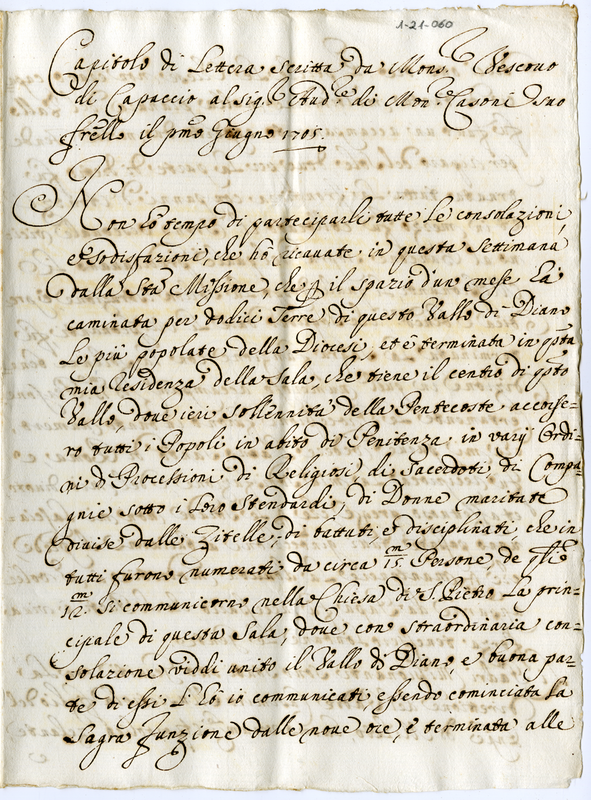 1-21-060
Capitolo di Lettera scritta da Mons.r Vescovo
di Capaccio al sig.r Aud.e di Mon.r Casoni suo
frello il pmo Giugno 1705.
Non hò tempo di participarli tutte le consolazioni
e sodisfazioni, che hò ricavate in questa settimana
dalla Sta Missione, che p il spazio d'un mese hà
caminata per dodici Terre di questo Vallo di Diano
le più popolate della Diocesi, et è terminata in qsta
mia Residenza della Sala, che tiene il centro di qsto
Vallo, dove ieri sollennità della Pentecoste accorse-
ro tutti i Popoli in abito di Penitenza in varij Ordi-
ni di Processioni di Religiosi, di Sacerdoti, di Compa-
gnie sotto i loro Stendardi, di Donne maritate
divise dalle Zitelle, di battuti, e disciplinati, che in
tutti furono numerati da circa 15.m Persone, de qli
12.m si communicorno nella Chiesa di S. Pietro la prin-
cipale di questa Sala, dove con straordinaria con-
solazione viddi unito il Vallo di Diano, e buona par-
te di essi l'hò io communicati, essendo cominciata la
Sagra Funzione dalle nove ore, e terminata alle